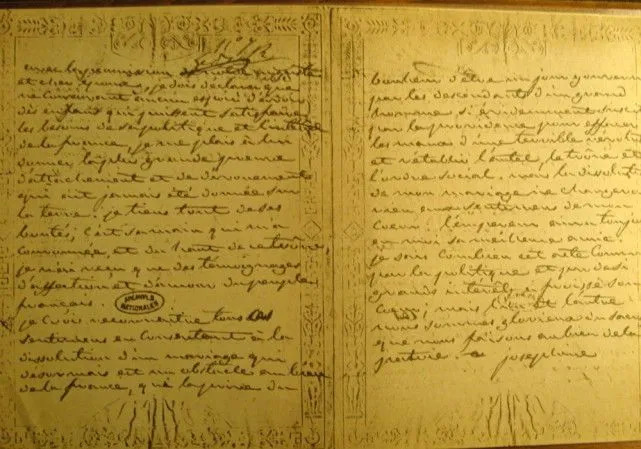 avec la permission de notre auguste
et cher époux, je dois déclarer que
ne conservant aucun espoir d'avoir
des enfans qui puissent satisfaire
les besoins de sa politique et l'intérêt
de la france, je me plais à lui
donner la plus grande preuve
d'attachement et de dévouement
qui ait jamais été donnée sur
la terre. je tiens tout de ses
bontés; c'est sa main qui m'a
couronnée, et du haut de ce trône,
je n'ai reçu que des témoignages
d'affection et d'amour du peuple
français.
ARCHIVES NATIONALES
je crois reconnaitre tous ces
sentimens en consentant à la
dissolution d'un mariage qui
desormais est un obstacle au bien
de la france, qui la prive du
bonheur d'être un jour gouvernée
par les descendants d'un grand
homme si evidemment suscité
par la providence pour effacer
les maux d'une terrible révolution
et rétablir l'autel, le trône et
l'ordre social. mais la dissolution
de mon mariage ne changera
rien aux sentimens de mon
coeur. l'empereur aura toujours
en moi sa meilleure amie.
je sais combien cet acte commandé
par la politique et par de si
grands interêts, a froissé son
coeur; mais l'un et l'autre
nous sommes glorieux du sacrifice
que nous faisons au bien de la
patrie. josephine